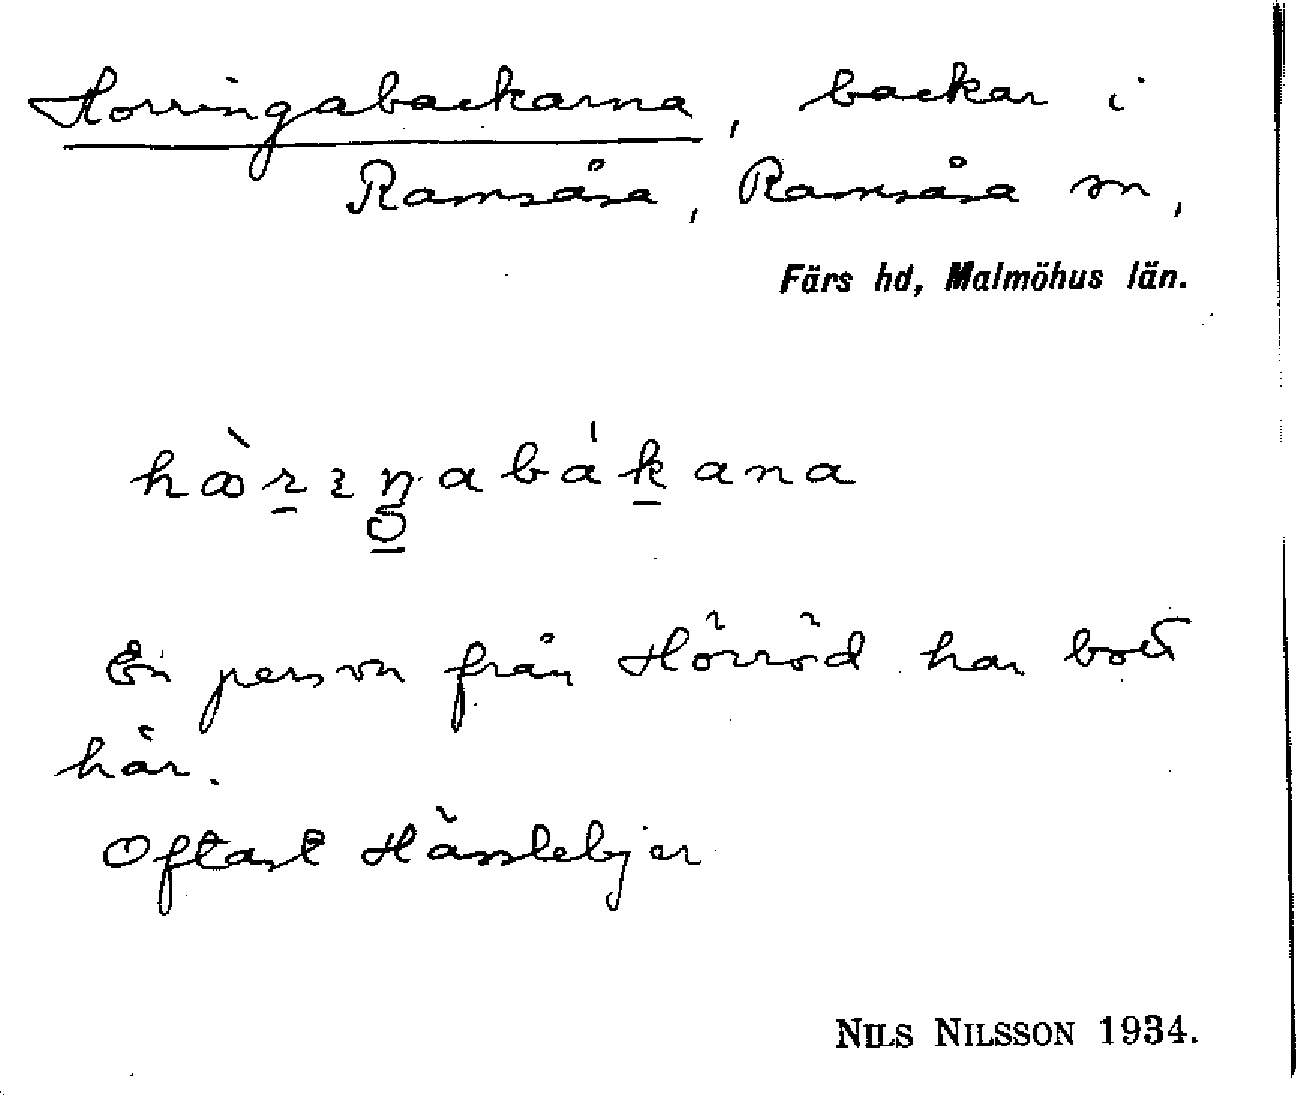 Horringabackarna, backar i
Ramsåsa, Ramsåsa sn,
Färs hd, Malmöhus län.
En person från Hörröd har bott
här.
Oftast Hässlebjer
NILS NILSSON 1934.